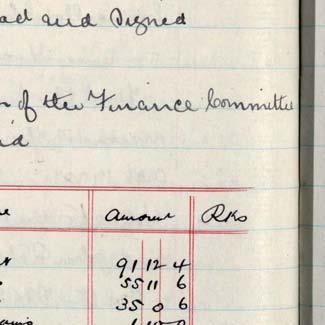 and Signed
of the Finance Committee
Amount Rks
91 12 4
55 11 6
35 0 6